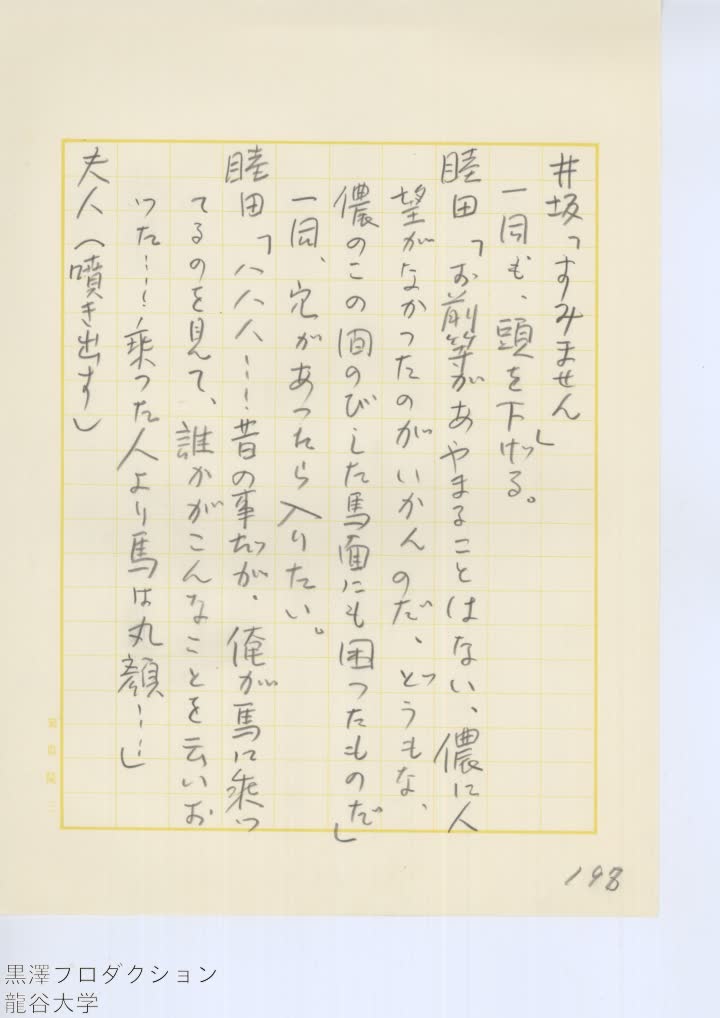 井坂「すみません」
一同も、頭を下げる。
睦田「お前等があやまることはない、儂に人
望がなかったのがいかんのだ、どうもな、
儂のこの間のびした馬面にも困ったものだ」
一同、穴があったら入りたい。
睦田「ハハハ……昔の事だが、俺が馬に乗っ
てるのを見て、誰かがこんなことを云いお
った……乗った人より馬は丸顔……」
夫人（噴き出す）
198
黒澤プロダクション
龍谷大学